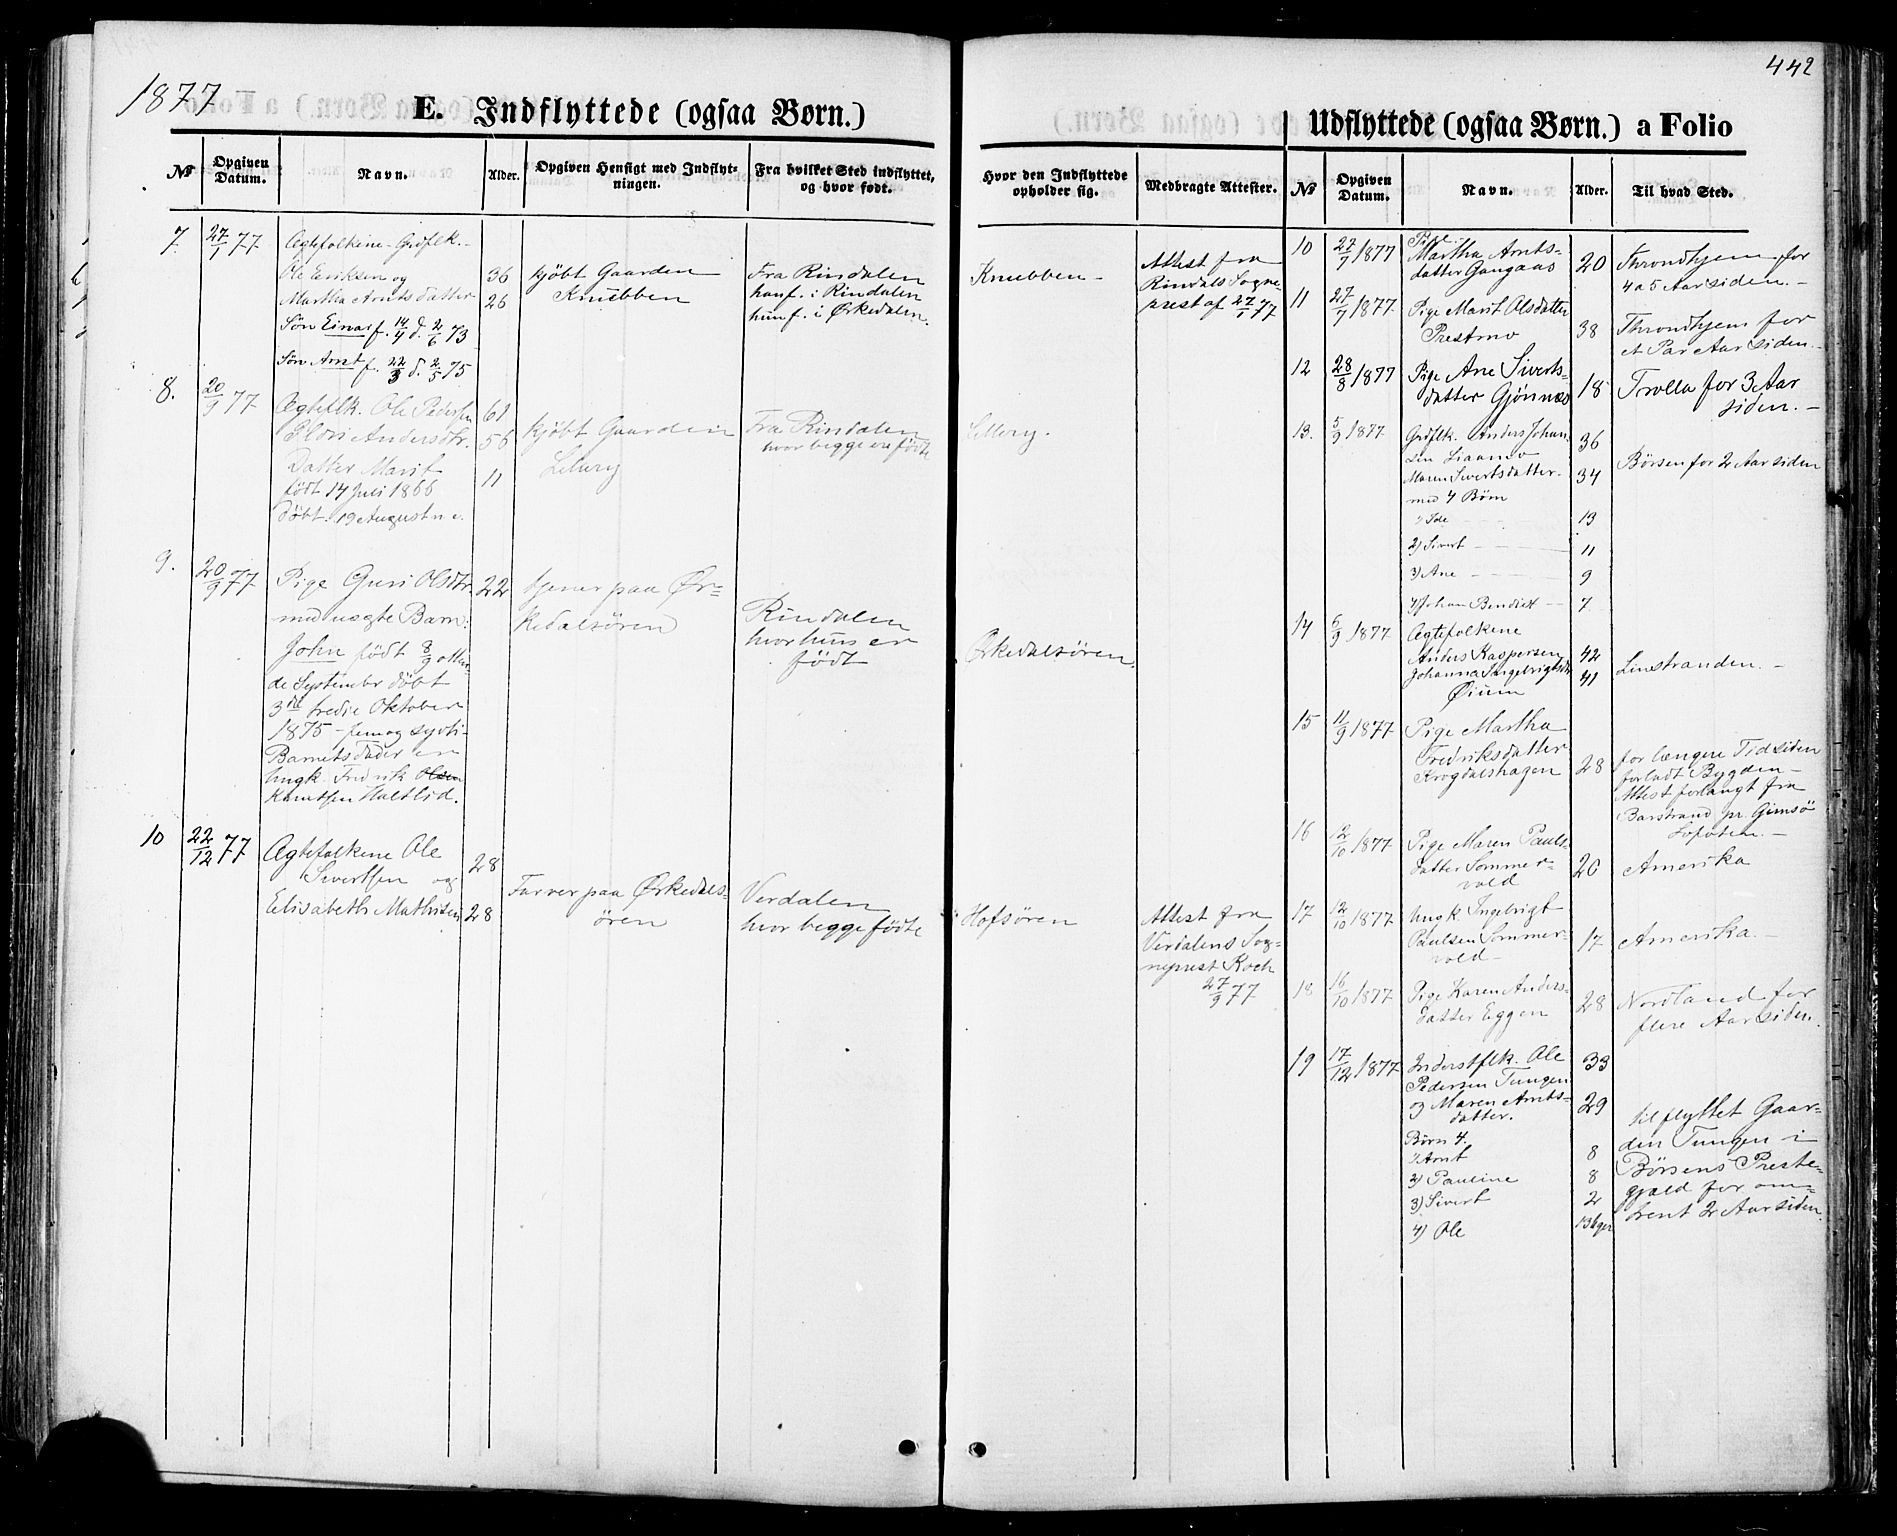 442
1877
E. Indflyttede (ogsaa Børn.)
No
Opgiven Datum.
Navn.
Alder.
Opgiven Hensigt med Indflyt-
ningen.
Fra hvilket Sted indflyttet,
og hvor født.
Hvor den Indflyttede
opholder sig.
Medbragte Attester.
7. 27/1 77
Ægtefolkene Grdflk.
Ole Eriksen og 36
Martha Arnts datter 26
Søn Einar f. 14/4 d. 2/6 73
Søn Arnt f. 22/3 d. 2/5 75
kjøbt Gaarden
Knubben
Fra Rindalen
han f. i Rindalen
hun f. i Ørkedalen.
Knubben
Attest fra
Rindals Sogne-
prest af 27/1 77
8. 20/9 77
Ægteflk. Ole Pedersen 61
Ildri Andersdtr. 56
Datter Marit 11
født 14 Juli 1866
døbt 19 August n.
kjøbt Gaarden
Fra Rindalen
hvor begge ere fødte
9. 20/9 77
Pige Guri Olsdtr. 22
med uægte Barn:
John født 8/9 otten-
de September døbt
3die tredie Oktober
1875 - fem og sytti-
Barnets Fader er
Ungk. Fredrik Olsen
Knudsen Haltlid.
tjener paa Ør-
kedalsøren
Rindalen
hvor hun er
født
Ørkedalsøren.
10 22/12 77
Ægtefolkene Ole
Sivertsen og 28
Elisabeth Mathisen 28
Farver paa Ørkedals-
øren
Verdalen
hvor begge fødte
Hofsøren
Attest fra
Verdalens Sog-
neprest Koch
27/9 77
Udflyttede (ogsaa Børn.) a Folio
No
Opgiven Datum.
Navn.
Alder.
Til hvad Sted.
10 27/7 1877
Pige
Martha Arnts-
datter Gangaas 20
Throndhjem for
4 a 5 Aar siden.
11 27/7 1877
Pige Marit Olsdatter
Prestmo 38
Throndhjem for
et Par Aar siden.
12 28/8 1877
Pige Ane Siverts-
datter Gjønnæs 18
Trolla for 3 Aar
siden.
13. 5/9 1877
Grdflk. Anders Johan-
sen Liaamo 36
Maren Sivertsdatter 34
med 4 Børn
1) Ide 13
2) Sivert 11
3) Ane 9
4) Johan Bendict 7
Børsen for 2 Aar siden
14 6/9 1877
Ægtefolkene
Anders Kaspersen 42
Johanna Ingebrigtsdtr 41
Øium
Linstranden.
15 11/9 1877
Pige Martha
Fredriksdatter
Krogdalshagen 28
for længere Tid siden
forladt Bygden -
Attest forlangt fra
Barstrand pr. Gimsø
Lofoten.
16 12/10 1877
Pige Maren Pauls-
datter Sommer-
vold 20
Amerika
17 12/10 1877
Ungk Ingebrigt
Paulsen Sommer-
vold 17
Amerika.
18 16/10 1877
Pige Karen Anders-
datter Eggen 28
Nordland for
flere Aar siden.
19 17/12 1877
Inderstflk. Ole 33
Pedersen Tungen
og Maren Arnts- 29
datter.
Børn 4.
1) Arnt 8
2) Pauline 8
3) Sivert 2
4) Ole 13 Uger
tilflyttet Gaar-
den Tungen i
Børsens Preste-
gjæld for om-
trent 2 Aar siden.